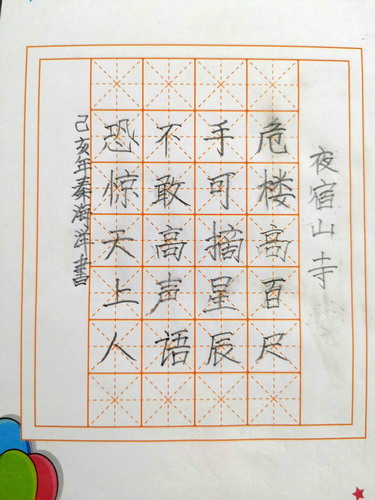 夜宿山寺
危楼高百尺
手可摘星辰
不敢高声语
恐惊天上人
己亥年秦海洋书